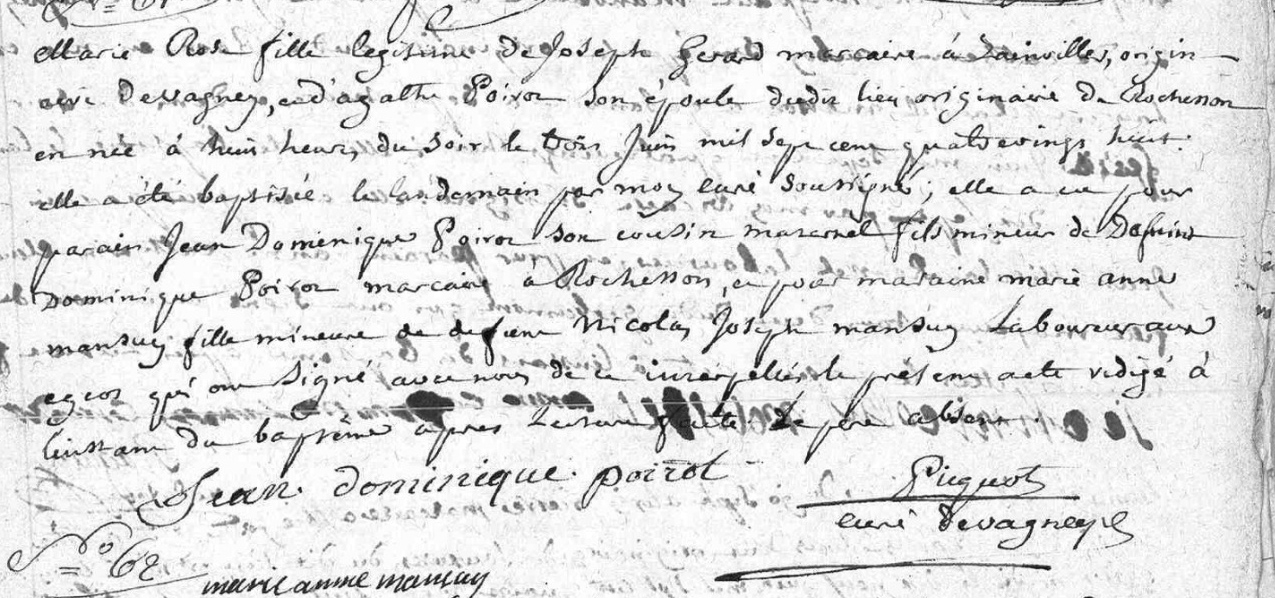 Marie Rose fille legitime de Joseph Gerard marcaire à Zainvillers, origin-
aire de vagney, et d'agathe Poirot son épouse dudit lieu originaire de Rochesson
en née à huit heures du soir le trois Juin mil sept cent quatrevingt huit.
elle a été baptisée le landemain par moy curé soussigné; elle a eu pour
parain Jean Dominique Poirot son cousin maternel fils mineur de Defunt
Dominique Poirot marcaire à Rochesson, et pour maraine marie anne
mansuy fille mineure de defunt Nicolas Joseph mansuy Laboureur aux
qui ont Signé avec nous de ce interpellés le présent acte redigé à
l'instant du baptême apres Lecture faite Le pere absent
Jean dominique poirot
Picquot
curé de vagney
N° 62
marie anne mansuy